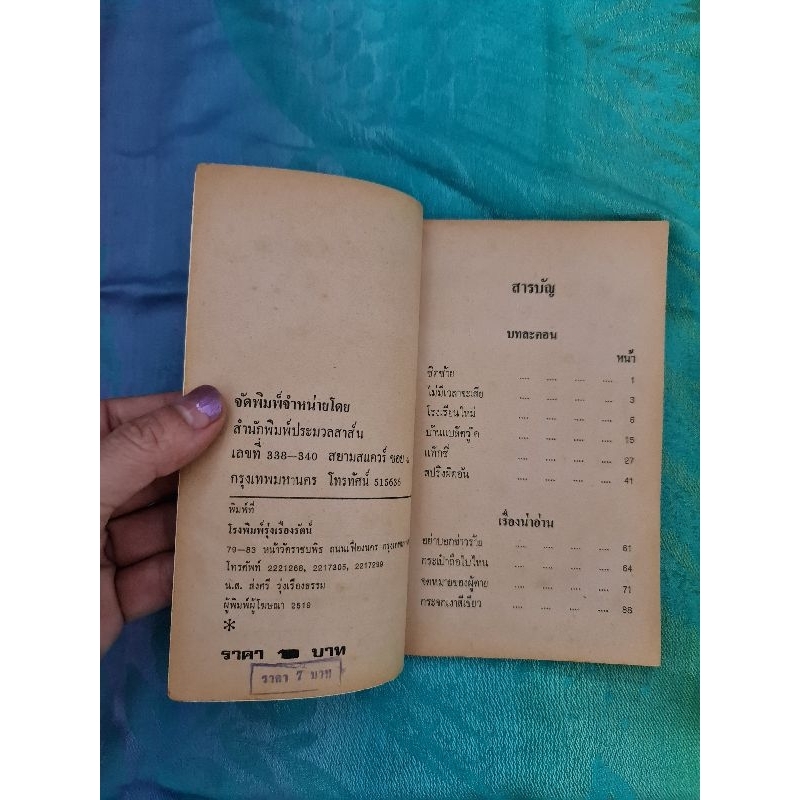 จัดพิมพ์จำหน่ายโดย
สำนักพิมพ์ประมวลสาส์น
เลขที่ 338–340 สยามสแควร์ ซอย
กรุงเทพมหานคร โทรทัศน์ 515636
พิมพ์ที่
โรงพิมพ์รุ่งเรืองรัตน์
79–83 หน้าวัดราชบพิธ ถนนเฟื่องนคร
โทรศัพท์ 2221268, 2217365, 2217299
น.ส. ส่งศรี รุ่งเรืองธรรม
ผู้พิมพ์ผู้โฆษณา 2519
*
ราคา บาท
ราคา 7 บาท
สารบัญ
บทละคอน
หน้า
ชิดซ้าย .... .... .... .... 1
ไม่มีเวลาจะเสีย .... .... .... .... 3
โรงเรียนใหม่ .... .... .... .... 6
บ้านแบทัควู๊ด .... .... .... .... 15
แท๊กซี่ .... .... .... .... 27
สปริงผิดอัน .... .... .... .... 41
เรื่องน่าอ่าน
อย่าบอกข่าวร้าย .... .... .... 61
กระเป๋าถือใบไหน .... .... .... 64
จดหมายของผู้ตาย .... .... .... 71
กระจกเงาสีเขียว .... .... .... .... 86